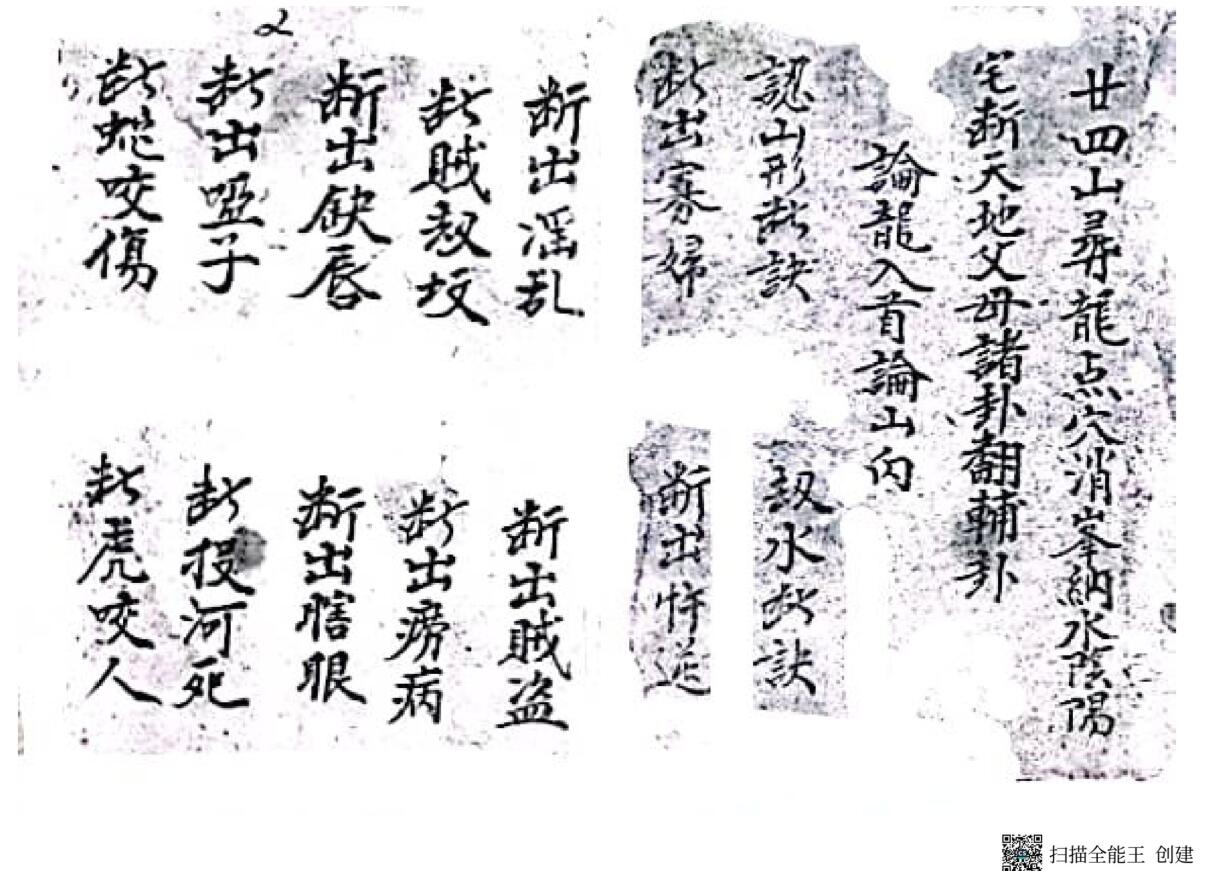 廿四山尋龍点穴消峯納水陰陽
宅断天地父母諸卦翻輔卦
論龍入首論山向
認山形断訣
認水断訣
断出寡婦
断出忤逆
断出淫乱
断出賊盗
断賊劫坟
断出痨病
断出缺唇
断出瞎眼
断出啞子
断投河死
断蛇咬傷
断虎咬人
2
扫描全能王 创建